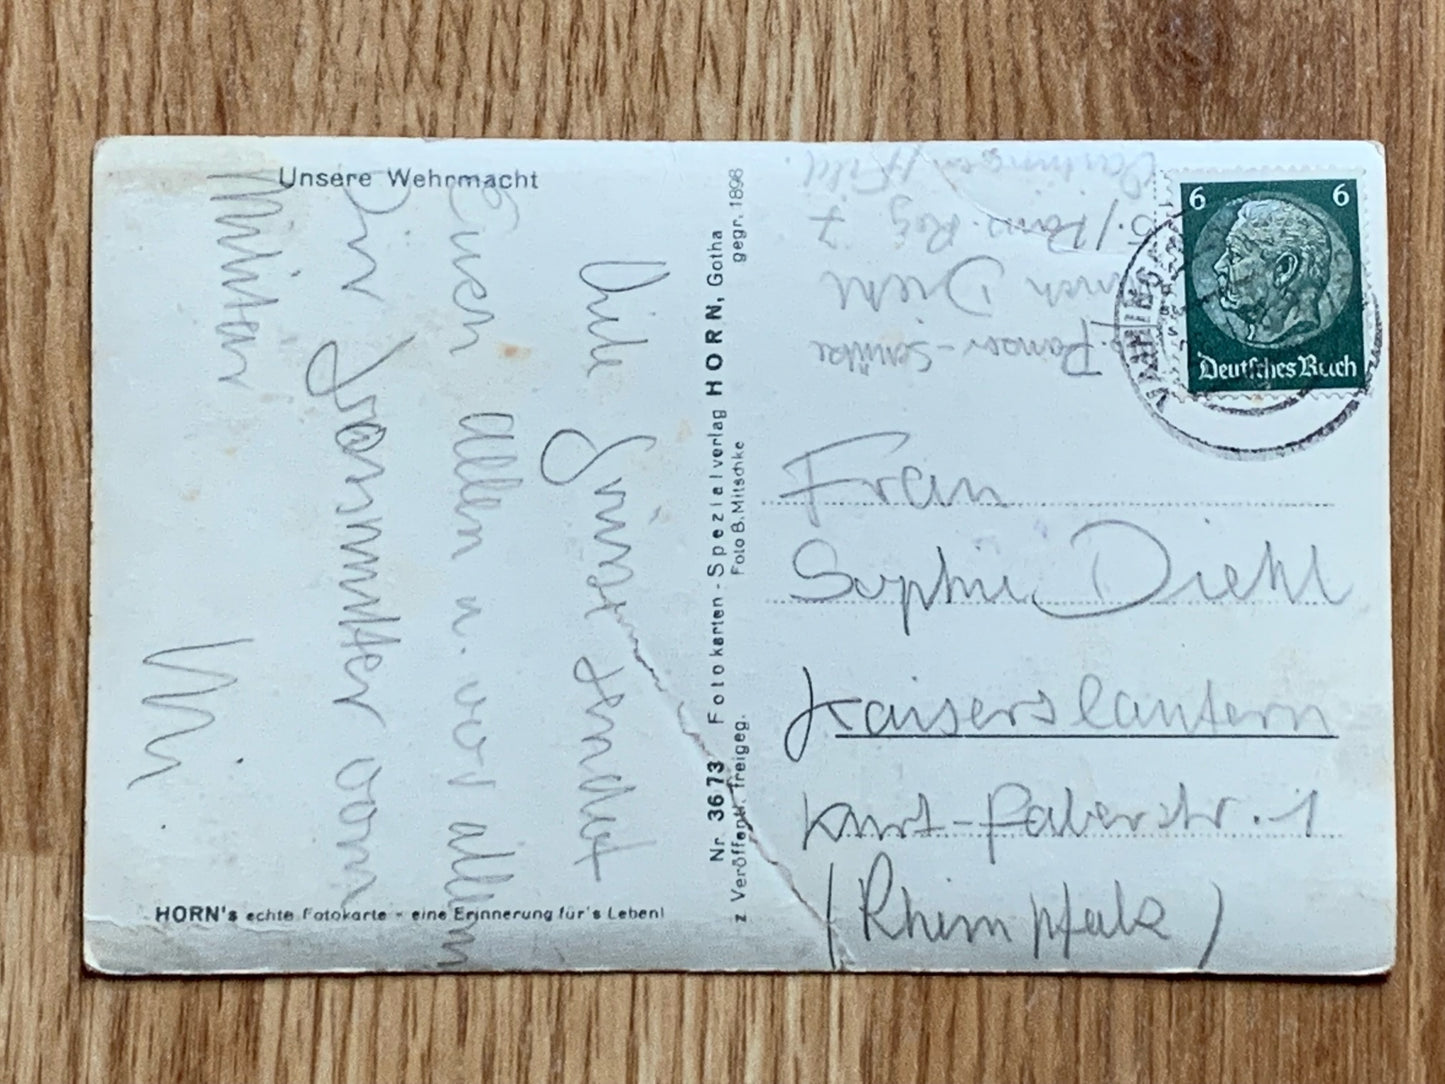 Unsere Wehrmacht
Viele Grüße sendet
Euch allen u. vor allem
Dir Grossmutter vom
Militär
Uli
HORN's echte Fotokarte - eine Erinnerung für's Leben!
Nr. 3673 Fotokarten - Spezialverlag HORN, Gotha
z. Veröffentl. freigeg. Foto B. Mitschke gegr. 1898
Panzer-Schütze
Diehl
6./Panz. Reg 7
Vaihingen/Fild.
6 6
Deutsches Reich
VAIHINGEN
Frau
Sophie Diehl
Kaiserslautern
Kurt-Faberstr. 1
(Rheinpfalz)